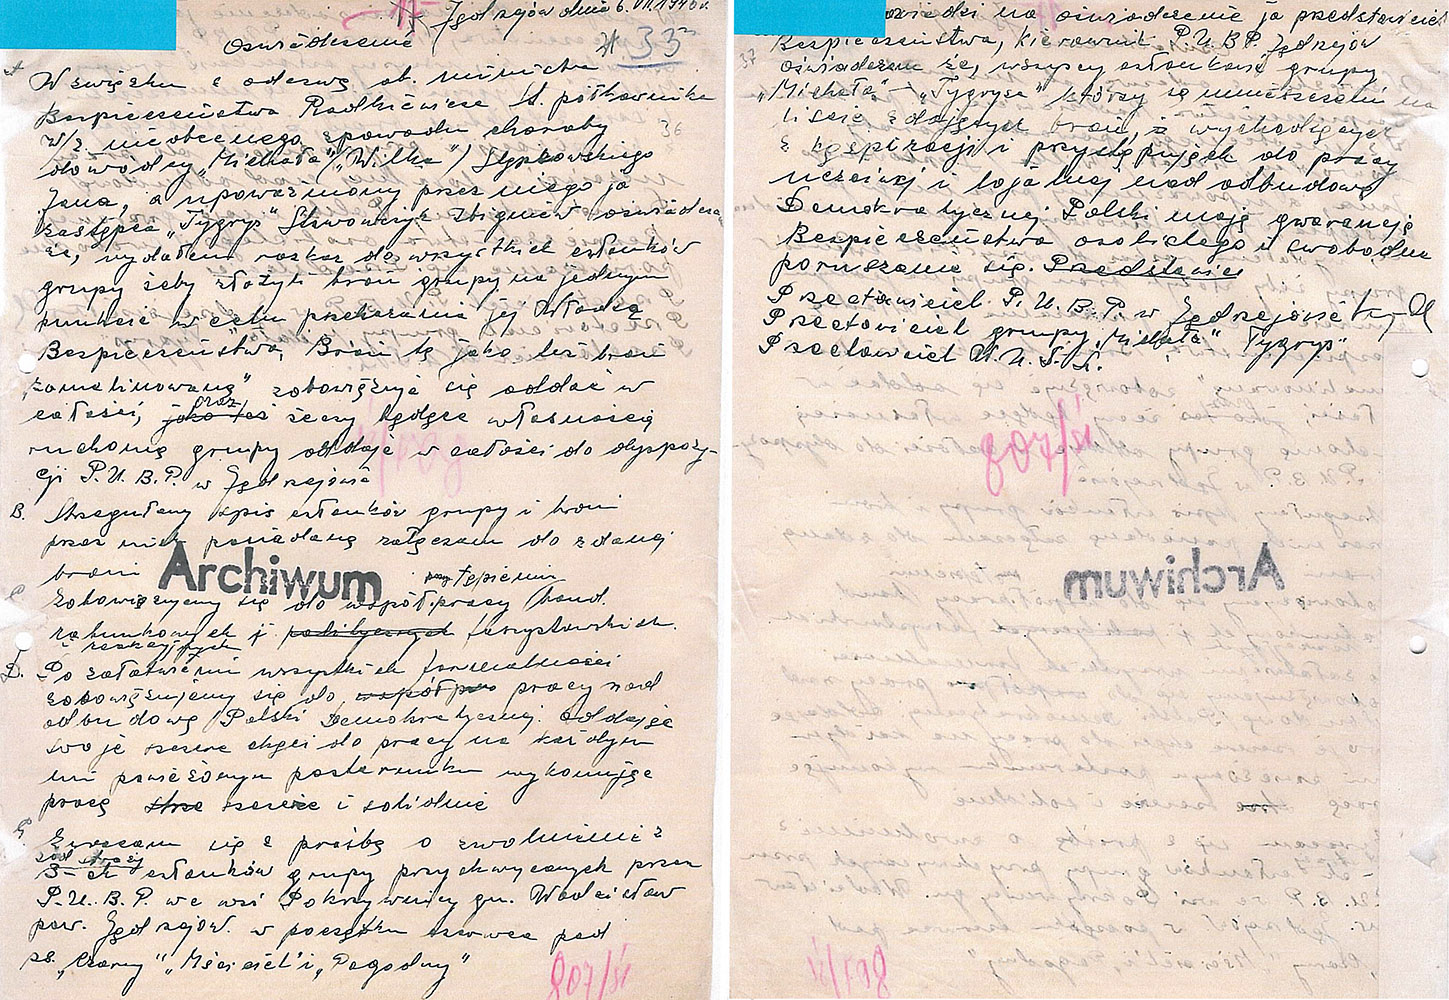 Jędrzejów dnia 6.VII.1946 r.
33
Oświadczenie
W związku z odezwą ob. ministra
Bezpieczeństwa Radkiewicza St. półkownika
W/z. nieobecnego z powodu choroby
36
dowódcy „Michała" („Wilka") Stępkowskiego
Jana, a upoważniony przez niego ja
zastępca „Tygrys" Zbigniew oświadczam
że, wydałem rozkaz do wszystkich członków
grupy żeby złożyli broń grupy na jednym
punkcie w celu przekazania jej Władzą
Bezpieczeństwa, Broń tę jako też broń
„zamelinowaną" zobowiązuje się oddać w
całości, jako też oraz rzeczy będące własnością
ruchomą grupy oddaję w całości do dyspozy-
cji P.U.B.P. w Jędrzejowie
B. Szczegułowy spis członków grupy i broni
przez nich posiadaną załączam do zdanej
broni
Archiwum
tępieniu
C. Zobowiązujemy się do współpracy band.
rabunkowych i politycznych faszystowskich.
i reakcyjnych
D. Po załatwieniu wszystkich formalności
zobowiązujemy się do współpra pracy nad
odbudową Polski Demokratycznej. Oddając
swoje szczere chęci do pracy na każdym
mi powieżonym posterunku wykonując
pracę szczerze i solidnie
Zwracam się z prośbą o zwolnienie z
pod straży
3-ch członków grupy przychwyconych przez
P.U.B.P. we wsi Pokrzywnicy gm. Wodzisław
pow. Jędrzejów. w początku czerwca pod
ps. „Czarny" „Mściciel" i „Pogodny"
807/śl
37
na oświadczenie ja przedstawiciel
Bezpieczeństwa, Kierownik P.U.B.P. Jędrzejów
oświadczam że, wszyscy członkowie grupy
„Michała" – „Tygrysa" którzy są umieszczeni na
liście zdających broń, i wychodzących
z konspiracji i przystępujących do pracy
uczciwej i lojalnej nad odbudową
Demokratycznej Polski mają gwarancję
Bezpieczeństwa osobistego i swobodne
poruszanie się. Przedstawiciel
Przectawiciel P.U.B.P. w Jędrzejowie
Przectoviciel grupy „Michała" „Tygrys"
Przectawiciel
807/śl